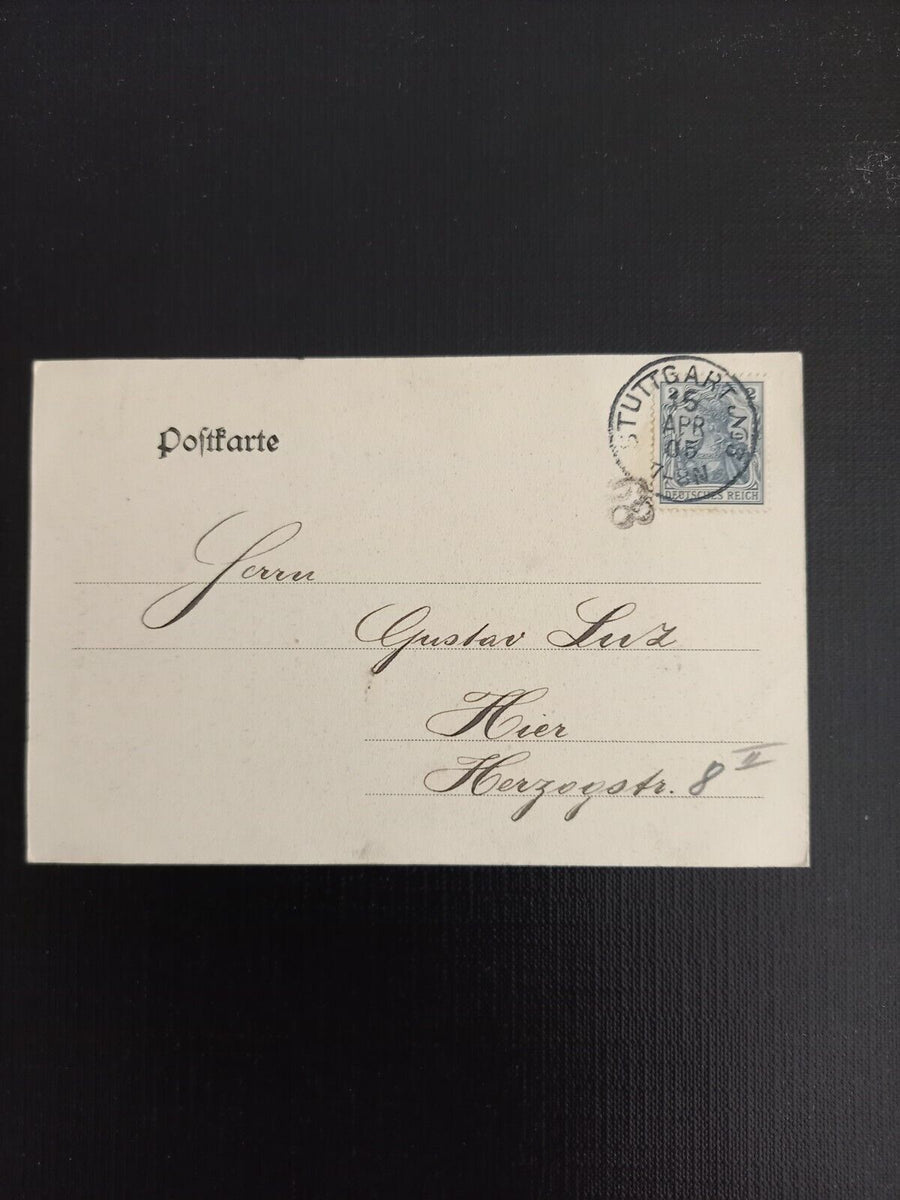 Poſtkarte
STUTTGART No 3
15
APR
05
7-8N
2 2
DEUTSCHES REICH
Herrn
Gustav Luz
Hier
Herzogstr. 8 II